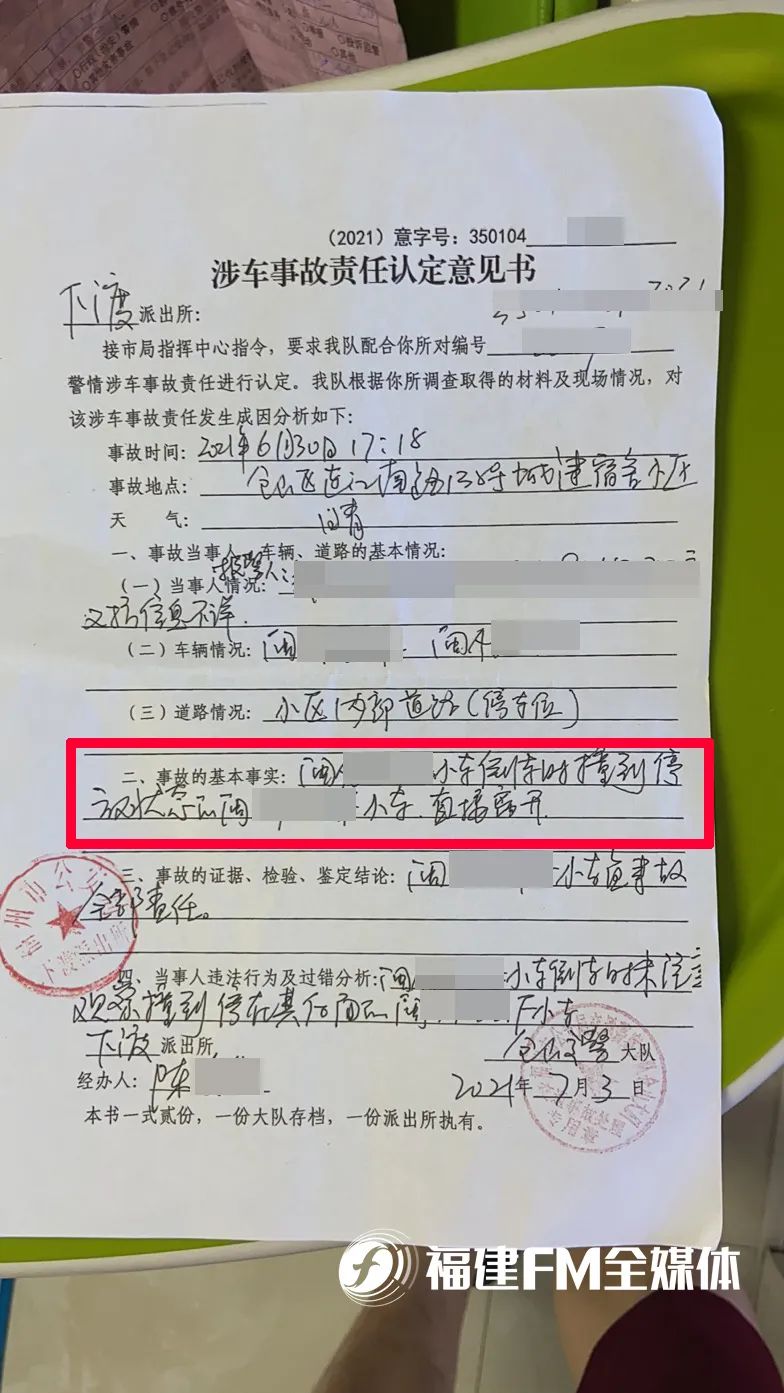 （2021）意字号：350104
涉车事故责任认定意见书
下渡派出所：
接市局指挥中心指令，要求我队配合你所对编号
警情涉车事故责任进行认定。我队根据你所调查取得的材料及现场情况，对
该涉车事故责任发生成因分析如下：
事故时间：2021年6月30日17：18
事故地点：仓山区连江南路138号城建宿舍小区
天 气：晴
一、事故当事人、车辆、道路的基本情况：
（一）当事人情况：报警人：
信息不详.
（二）车辆情况：闽 闽A
（三）道路情况：小区内部道路(停车位)
二、事故的基本事实：闽A 小车倒车时撞到停
放状态的闽 小车.直接离开.
三、事故的证据、检验、鉴定结论：闽 小车负事故
全部责任。
四、当事人违法行为及过错分析：闽 小车倒车时未注意
观察撞到停在其后面的闽 小车
下渡派出所 仓山交警大队
经办人：陈 2021年7月3日
本书一式贰份，一份大队存档，一份派出所执有。
福州市公安
下渡派出所
福建FM全媒体